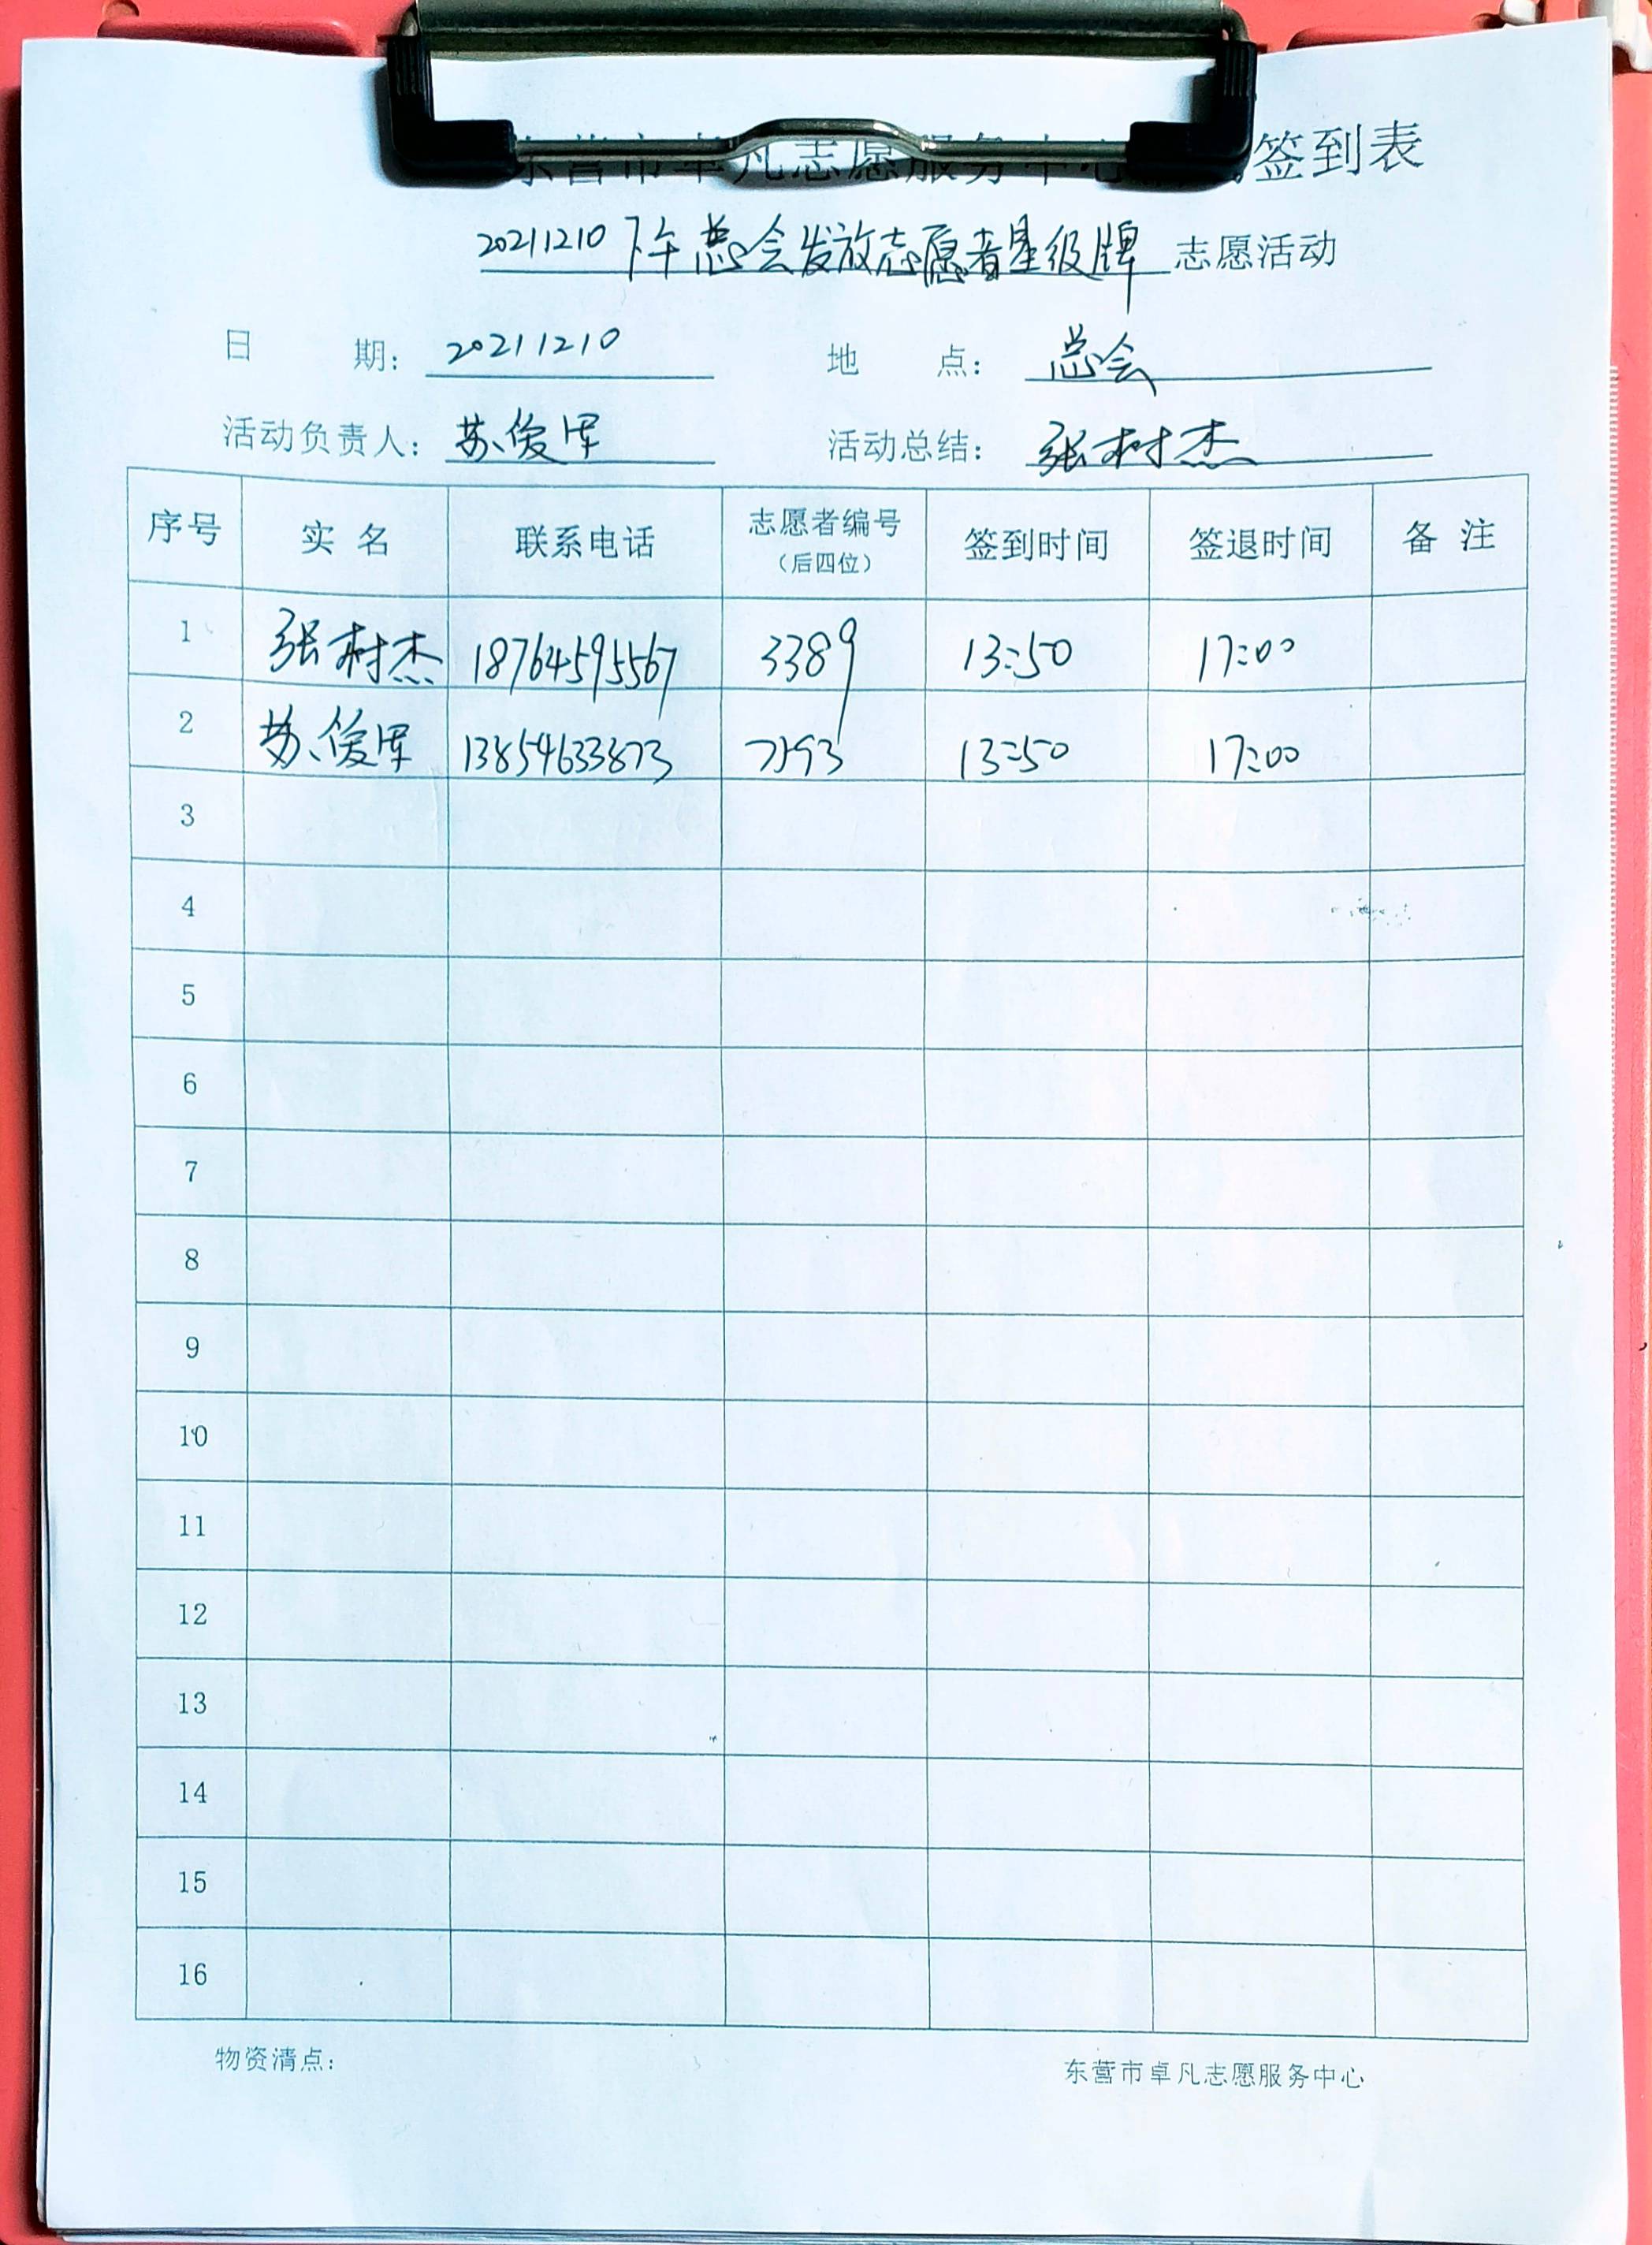 东营市卓凡志愿服务中心 签到表
20211210下午总会发放志愿者星级牌 志愿活动
日 期: 20211210 地 点: 总会
活动负责人: 苏俊军 活动总结: 张树杰
序号 实名 联系电话 志愿者编号 (后四位) 签到时间 签退时间 备注
1 张树杰 18764595567 3389 13:50 17:00
2 苏俊军 13854633873 13:50 17:00
3
4
5
6
7
8
9
10
11
12
13
14
15
16
物资清点: 东营市卓凡志愿服务中心